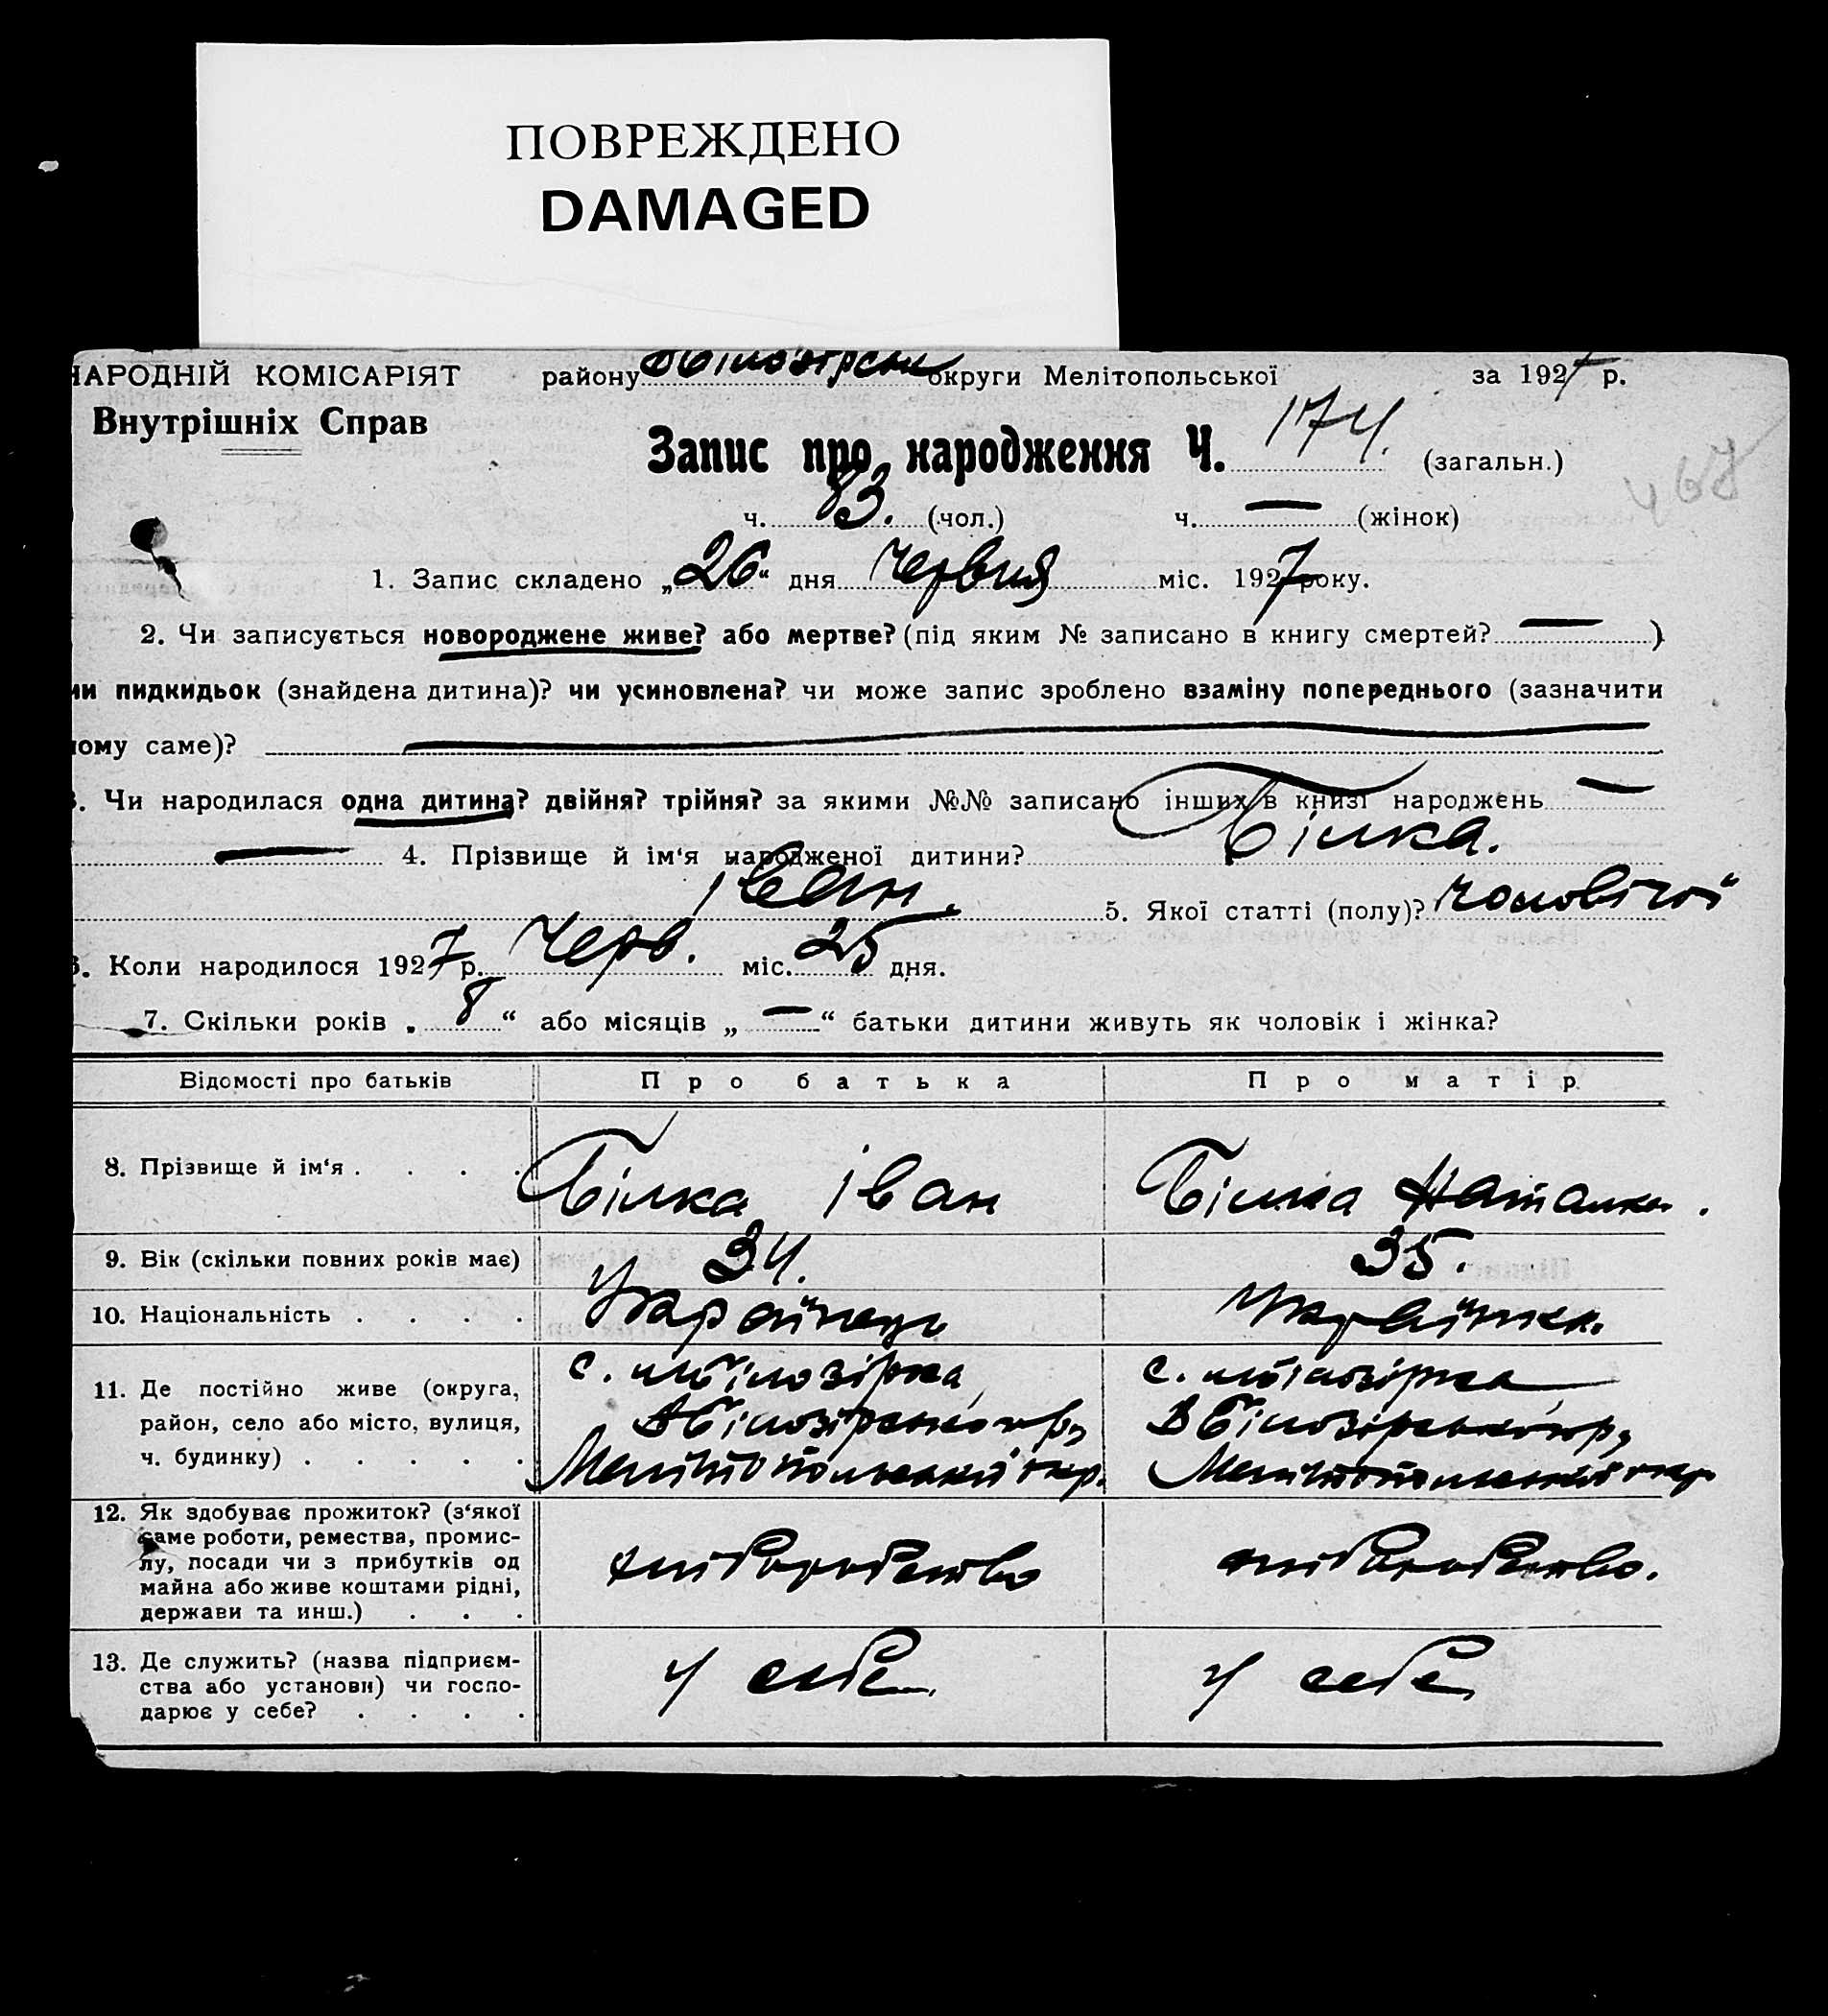 ПОВРЕЖДЕНО
DAMAGED
НАРОДНІЙ КОМІСАРІЯТ району округи Мелітопольської за 1927 р.
Внутрішніх Справ
Запис про народження Ч. 174. (загальн.)
ч. 83. (чол.) ч. — (жінок)
1. Запис складено „26“ дня Червня міс. 1927 року.
2. Чи записується новороджене живе? або мертве? (під яким № записано в книгу смертей? — )
чи пидкидьок (знайдена дитина)? чи усиновлена? чи може запис зроблено взаміну попереднього (зазначити
чому саме)? —
3. Чи народилася одна дитина? двійня? трійня? за якими №№ записано інших в книзі народжень —
— 4. Прізвище й ім‘я народженої дитини? Білка.
Іван. 5. Якої статті (полу)? чоловічої
6. Коли народилося 1927 р. Черв. міс. 25 дня.
7. Скільки років „ 8 “ або місяців „ — “ батьки дитини живуть як чоловік і жінка?
Відомості про батьків Про батька Про матір
8. Прізвище й ім‘я . . . . Білка Іван Білка Наталка.
9. Вік (скільки повних років має) 34. 35.
10. Національність . . . . Українець Українка.
11. Де постійно живе (округа, с. білозірка с. білозірка
район, село або місто, вулиця, В Білозірського р, В Білозірського р,
ч. будинку) . . . . . Мелітопольської окр. Мелітопольської окр
12. Як здобуває прожиток? (з‘якої
саме роботи, ремества, промис-
лу, посади чи з прибутків од хліборобство хліборобство.
майна або живе коштами рідні,
держави та инш.) . . .
13. Де служить? (назва підприєм-
ства або установи) чи госпо- у себе у себе
дарює у себе? . . . .